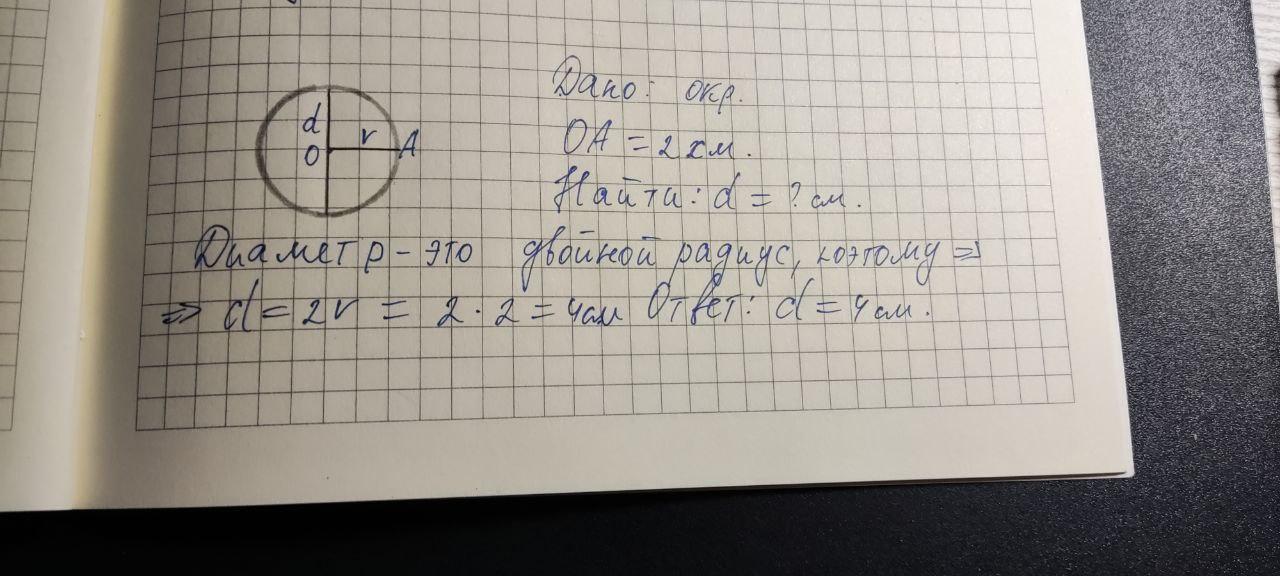 Дано: окр.
d
r
A
O
OA = 2 см.
Найти: d = ? см.
Диаметр - это двойной радиус, поэтому =>
=> d = 2r = 2 · 2 = 4см Ответ: d = 4 см.